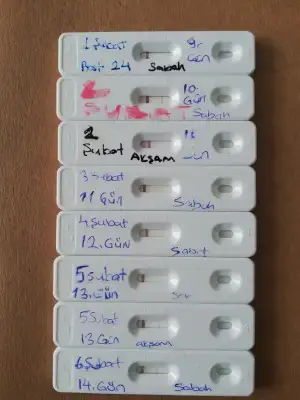 1 Şubat 9.
Gün
Beta 24 Sabah
2 10.
Gün
Şubat Sabah
2
Şubat Akşam
3 Şubat
11 Gün Sabah
4 Şubat
12. GÜN Sabah
5 Şubat
13. Gün
5 Şubat
13 Gün akşam
6 Şubat
14. Gün Sabah